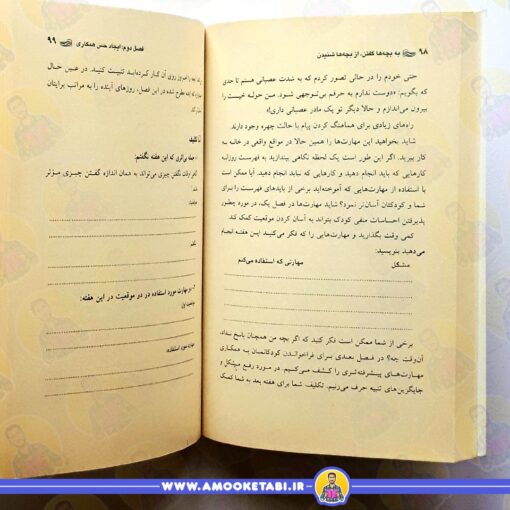 ۹۸ به بچه‌ها گفتن، از بچه‌ها شنیدن
حتی خودم را در حالی تصور کردم که به شدت عصبانی هستم تا حدی
که بگویم: «دوست ندارم به حرفم بی‌توجهی شود. من حوله خیست را
بیرون می‌اندازم و حالا دیگر تو یک مادر عصبانی داری!»
راه‌های زیادی برای هماهنگ کردن پیام با حالت چهره وجود دارند.
شاید بخواهید این مهارت‌ها را همین حالا در مواقع واقعی در خانه به
کار ببرید. اگر این طور است یک لحظه نگاهی بیندازید به فهرست روزانه
کارهایی که باید انجام دهید و کارهایی که نباید انجام دهید. آیا ممکن است
با استفاده از مهارت‌هایی که آموخته‌اید برخی از بایدهای فهرست برای
شما و کودکتان آسان‌تر شود؟ شاید مهارت‌ها در فصل یک، در مورد چطور
پذیرفتن احساسات منفی کودک بتواند به آسان کردن موقعیت کمک کند.
کمی وقت بگذارید و مهارت‌هایی را که فکر می‌کنید این هفته انجام
می‌دهید بنویسید:
مشکل مهارتی که استفاده می‌کنم
برخی از شما ممکن است فکر کنید که اگر بچه من همچنان پاسخ نداد،
آن‌وقت چه؟ در فصل بعدی برای فراخواندن کودکانمان به همکاری
مهارت‌های پیشرفته‌تری را کشف می‌کنیم. در مورد رفع مشکل و
جایگزین‌های تنبیه حرف می‌زنیم. تکلیف شما برای هفته بعد به شما کمک
فصل دوم: ایجاد حس همکاری ۹۹
روی آن کار کرده‌اید تثبیت کنید. در عین حال
طرح شده در این فصل، روزهای آینده را به مراتب برایتان
تکلیف
۱- جمله بی‌اثری که این هفته نگفتم:
نگفتن چیزی می‌تواند به همان اندازه گفتن چیزی مؤثر
موقعیت:
نگفتم:
۲- دو مهارت مورد استفاده در دو موقعیت در این هفته:
موقعیت اول:
مهارت مورد استفاده:
WWW.AMOOKETABI.IR